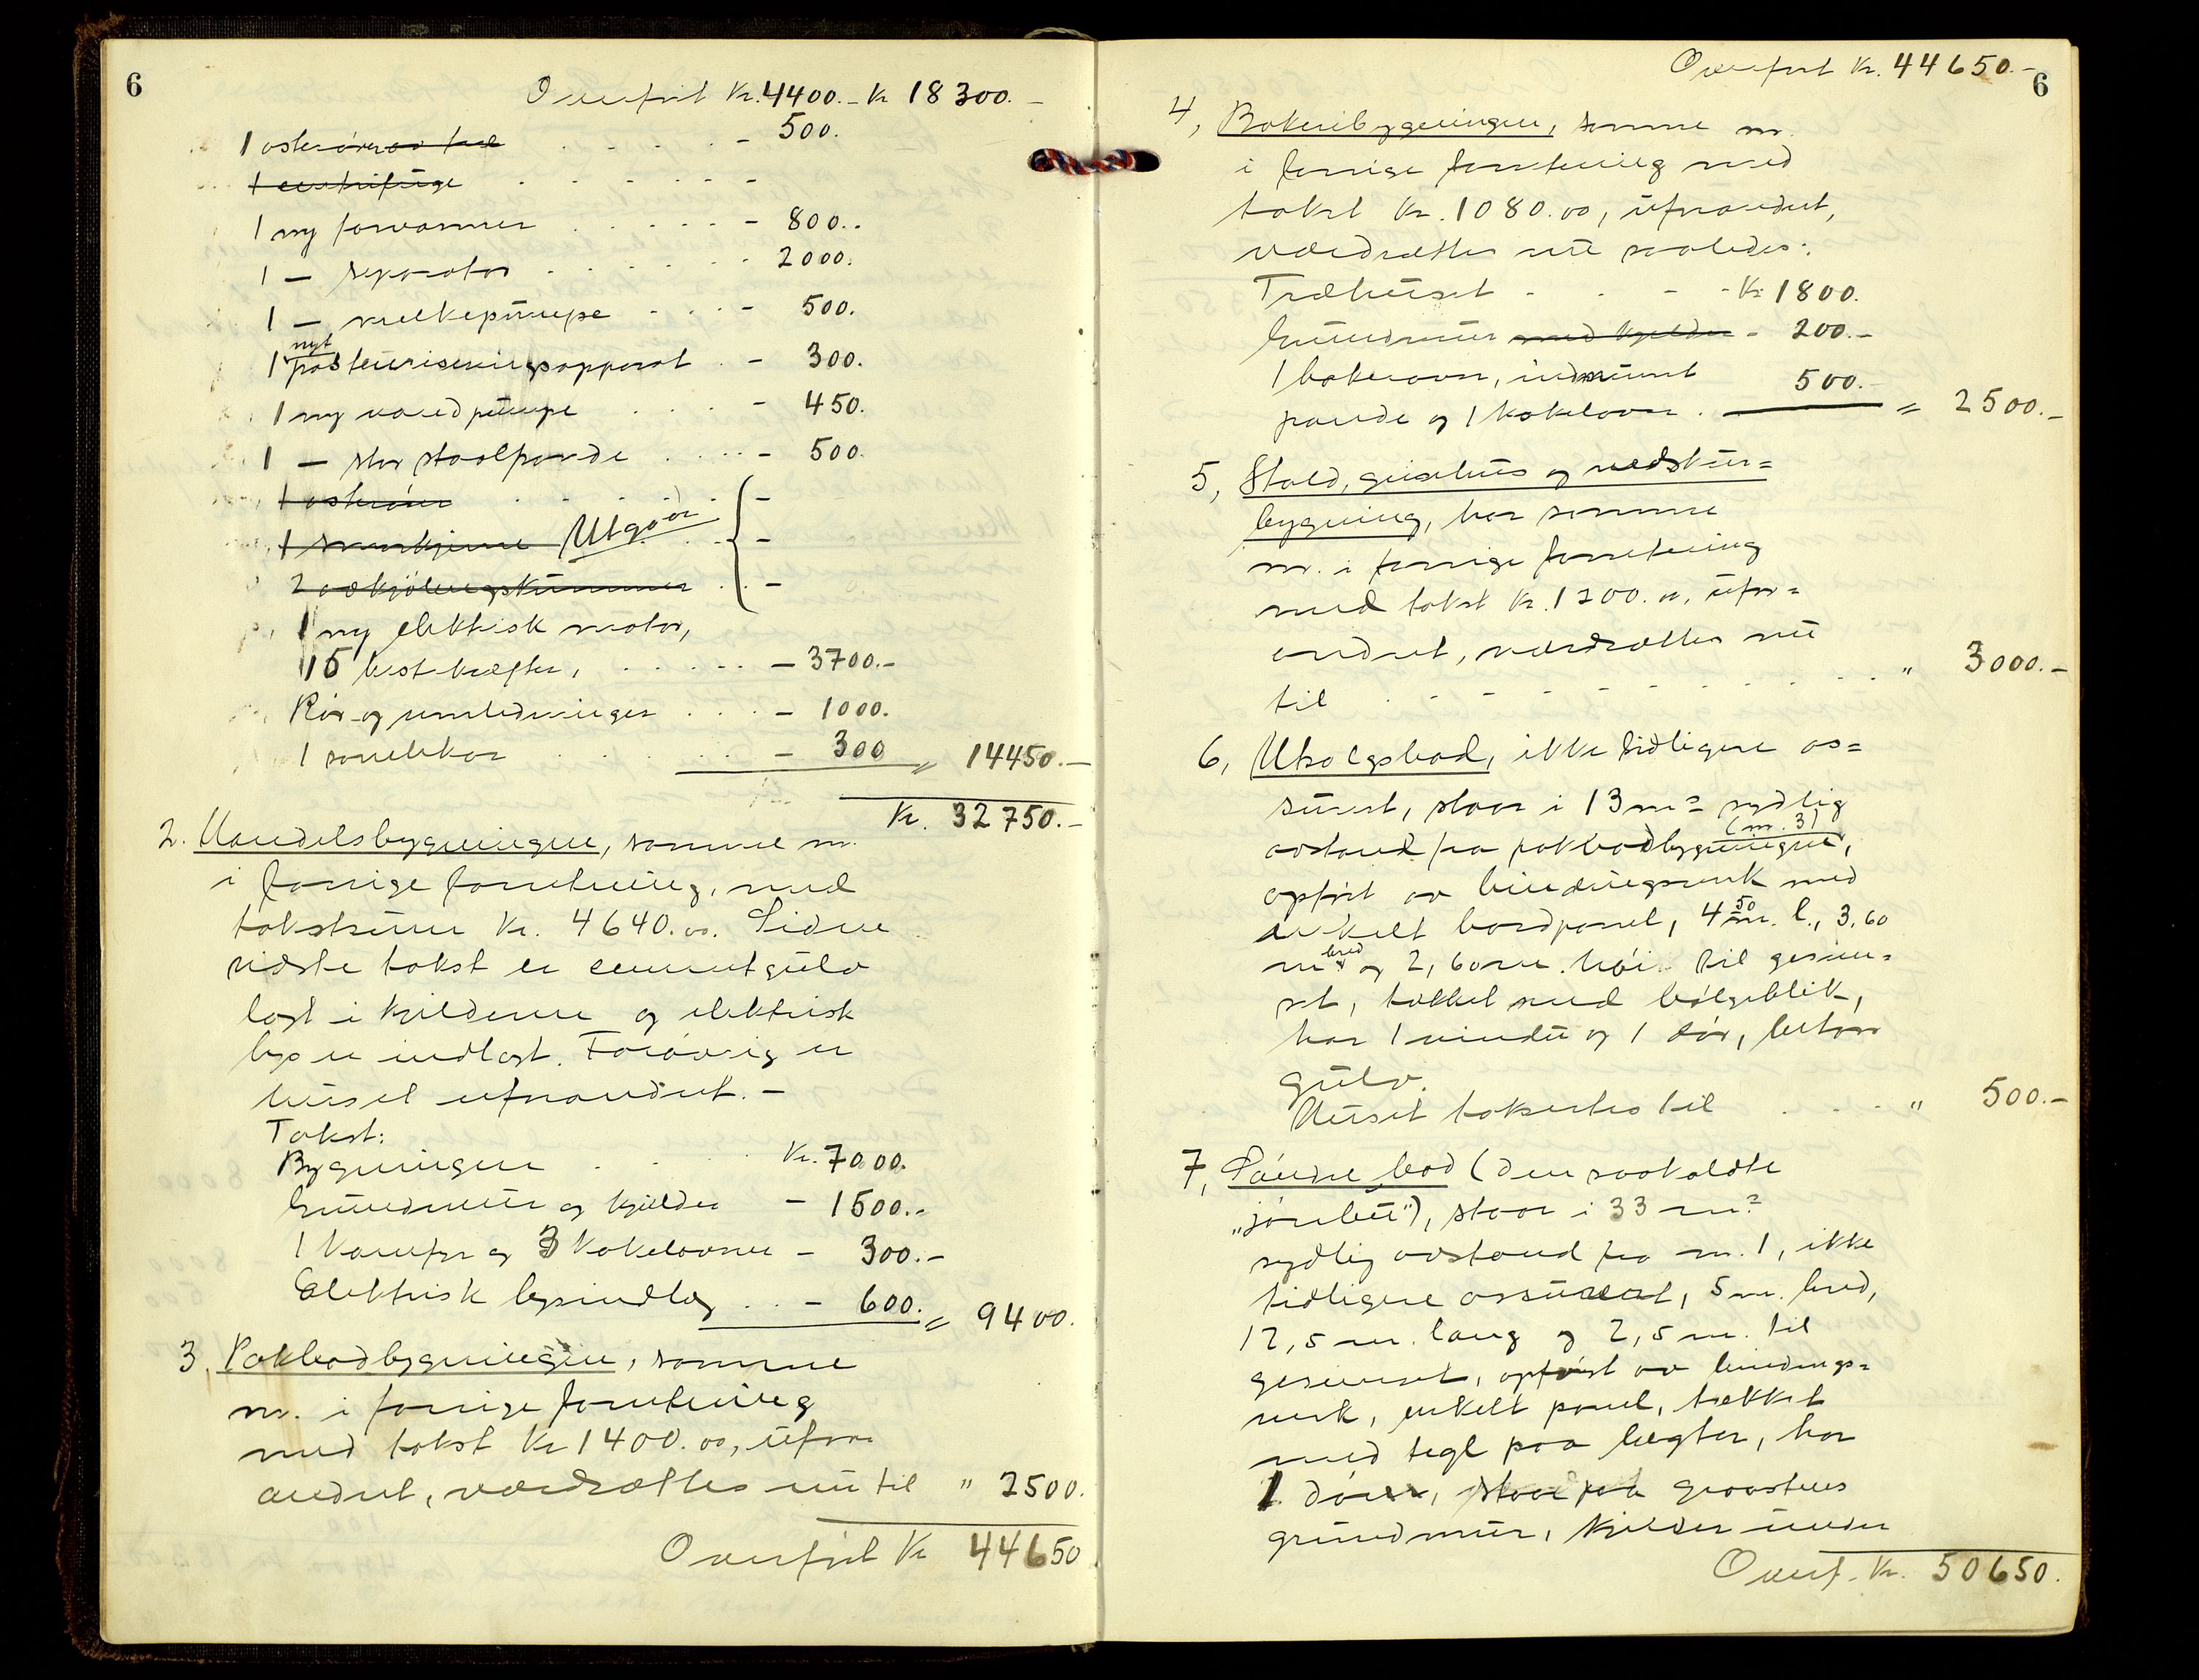 6
Overført Kr. 4400.- Kr 18300.-
1 osterører
 . . . . - 500.
1 centrifuge . . . . . . -
1 ny forvarmer . . . . . - 800..
1 — separator . . . . . . 2000.
1 — melkepumpe . . . - 500.
nyt
1 pasteuriseringsapparat . - 300.
1 ny vandpumpe . . . - 450.
1 — stor staalpande . . . . - 500.
1 . . . . . . -
1 smørkjerne Utgaar . . -
2 avkjølingskummer . . -
1 ny elektrisk motor,
15 hestkræfter, . . . . . . - 3700.-
Rør og remledninger . . . - 1000.
1 . . . . . - 300 " 14450.-
Kr. 32750.-
2. Handelsbygningen, samme nr.
i forrige forretning, med
takstsum Kr. 4640.00. Siden
sidste takst er cementgulv
lagt i kjelderne og elektrisk
lys er indlagt. Forøvrig er
huset uforandret. -
Takst:
Bygningen . . . Kr. 7000.
Grundmur og kjelder - 1500.-
1 komfyr og 3 kakelovner - 300.-
Elektrisk lysindlæg . . - 600. " 9400.
3, Pakbodbygningen, samme
nr. i forrige forretning
med takst Kr 1400.00, ufor
andret, værdsættes nu til " 2500.
Overført Kr 44650
Overført Kr. 44650.-
6
4, Bakeribygningen, samme nr.
i forrige forretning med
takst Kr. 1080.00, uforandret,
værdsættes nu saaledes:
Træhuset - . - - Kr 1800.
Grundmur med kjelder - 200.-
1 bakerovn, indmuret
pande og 1 kakelovn . 500.- " 2500.-
5, Stald, grisehus og vedskur=
bygning, har samme
nr. i forrige forretning
med takst Kr. 1200.00, ufor=
andret, værdsættes nu
til . . . . . . . . . . " 3000.-
6, Utsalgsbod, ikke tidligere as=
surert, staar i 13 m= sydlig
(nr. 3)
avstand fra pakbodbygningen,
opført av bindingsverk med
enkelt bordpanel, 4 50 m. l., 3,60
bred
m og 2,60 m. høi til gesim=
set, tækket med bølgeblik,
har 1 vindu og 1 dør, beton
gulv.
Huset taksertes til . . . . " 500.-
7, Søndre bod (den saakaldte
"), staar i 33 m=
sydlig avstand fra nr. 1, ikke
tidligere assurert, 5 m. bred,
12,5 m. lang og 2,5 m. til
gesimset, opført av bindings=
verk, enkelt panel, tækket
med tegl paa lægter, har
1 dør, staar paa graastens
grundmur, kjelder under
Overf. Kr. 50650.